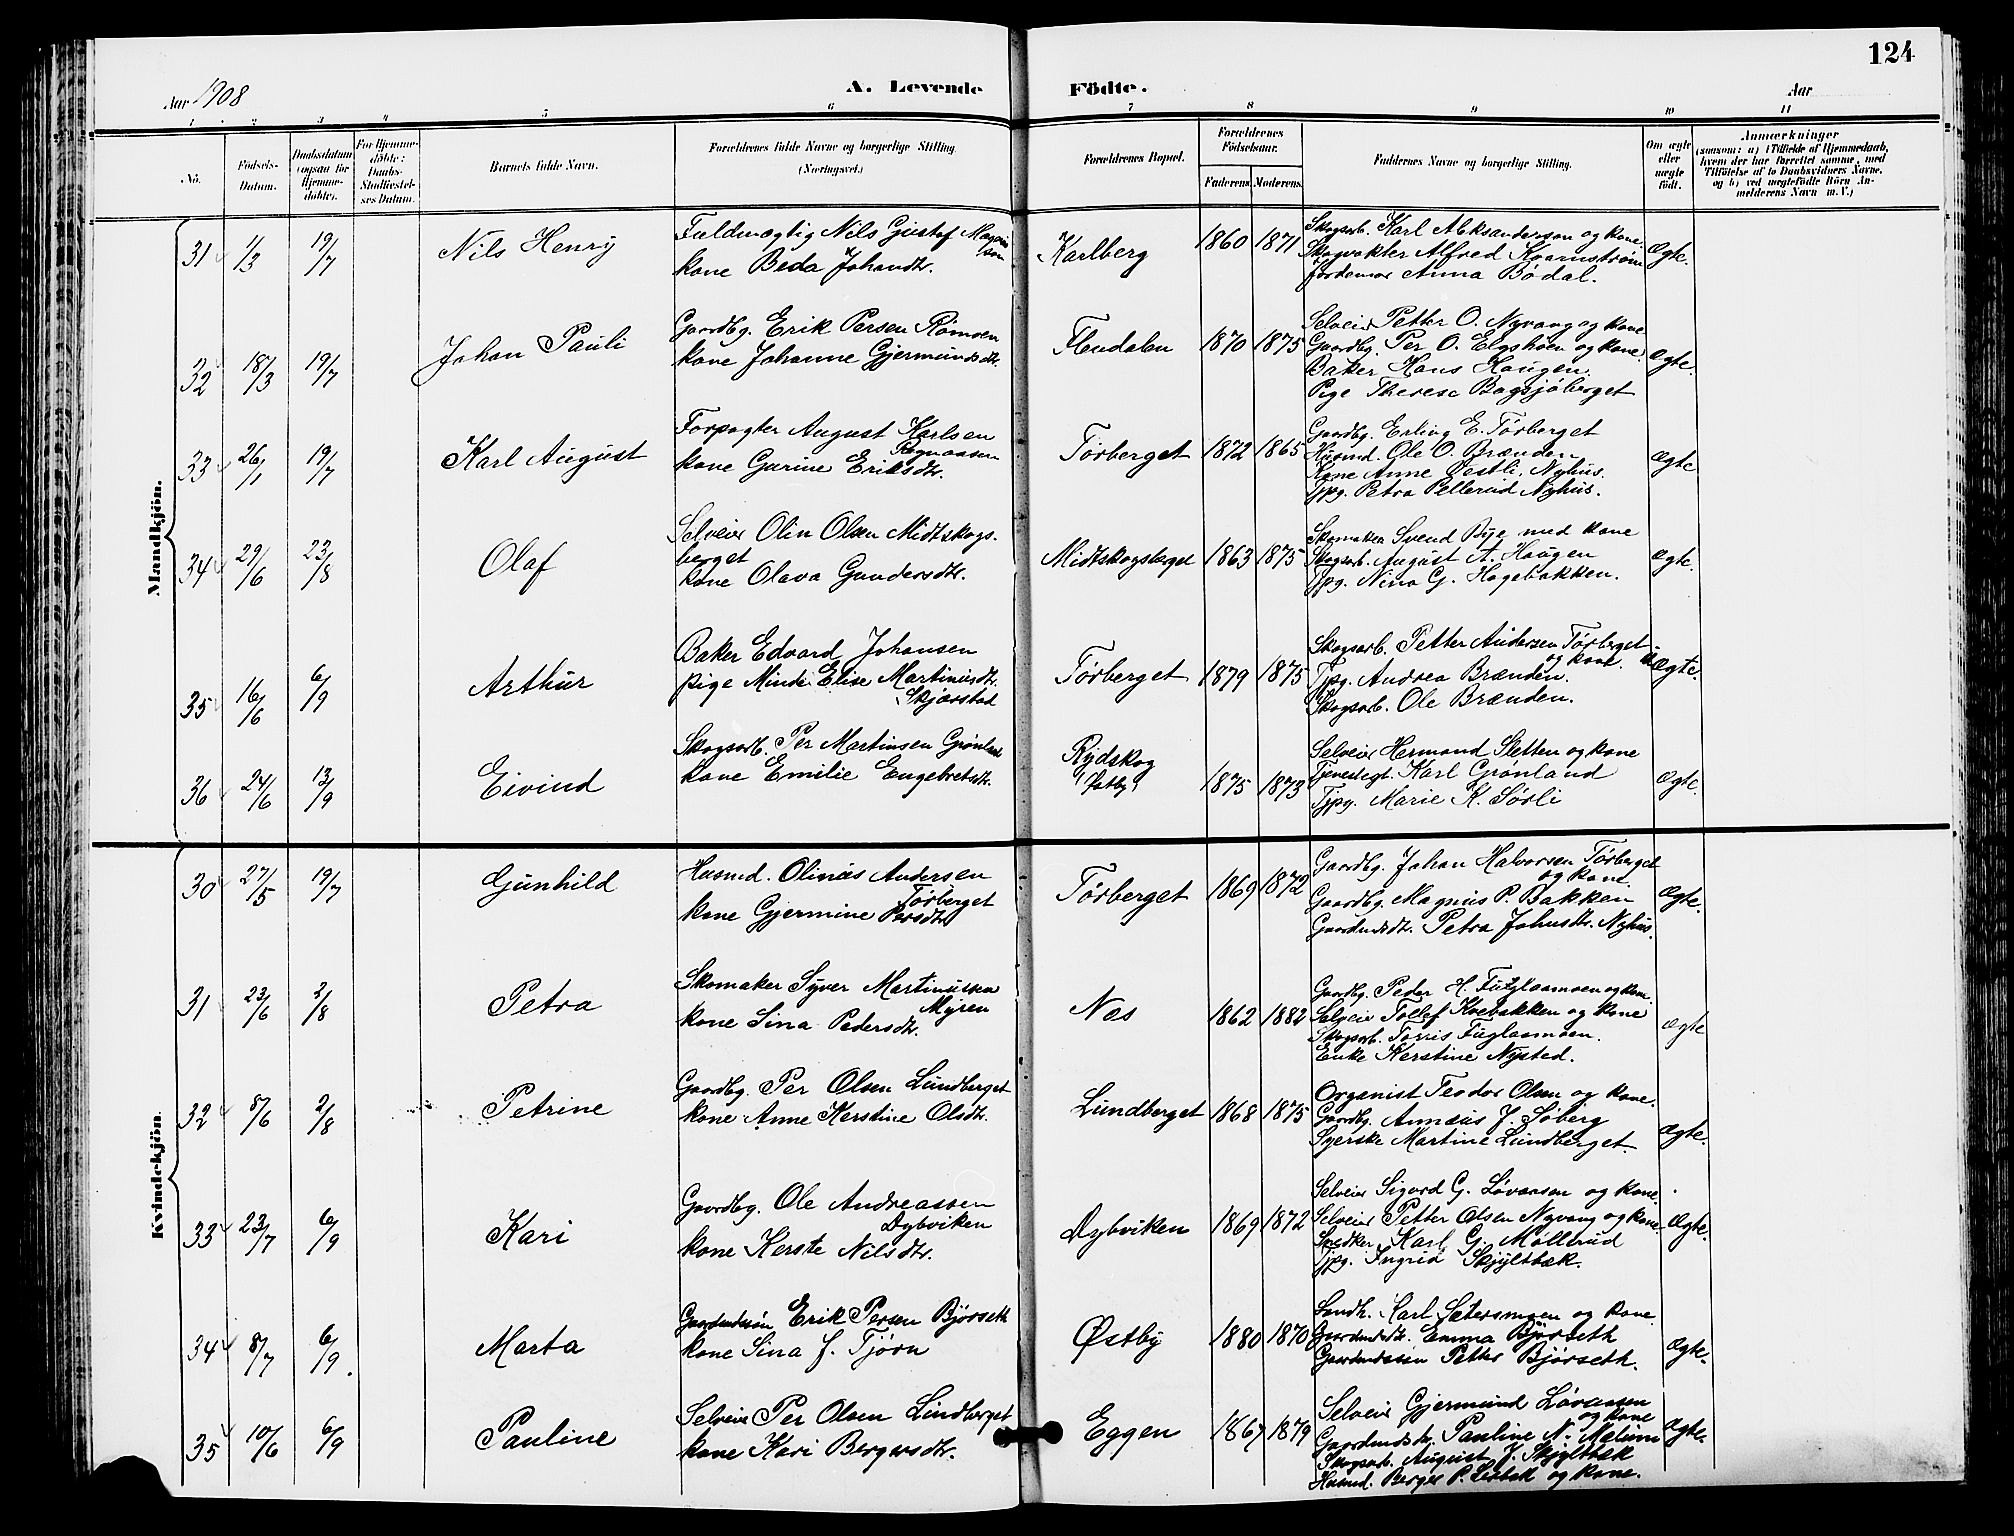 124
Aar 1908
A. Levende Födte.
Aar
1 2 3 4 5 6 7 8 9 10 11
No.
Födsels-Datum.
Daabsdatum (ogsaa för Hjemmedöbte).
For Hjemmedöbte: Daabs-Stadfæstelses Datum.
Barnets fulde Navn.
Forældrenes fulde Navne og borgerlige Stilling (Næringsvei.)
Forældrenes Bopæl.
Forældrenes Födselsaar.
Faderens. Moderens.
Faddernes Navne og borgerlige Stilling.
Om ægte eller uægte födt.
Anmærkninger
(saasom: a) i Tilfælde af Hjemmedaab, hvem der har forrettet samme, med Tilföielse af to Daabsvidners Navne, og b) ved uægtefödte Börn Anmelderens Navn m. V.)
Mandkjön.
31 1/3 19/7 Nils Henry
Fuldmægtig Nils Gustaf Magnuson
kone Beda Johansdtr.
Karlberg 1860 1871
Skogsarb. Karl Aleksanderson og kone.
Skogvakter Alfred Kvarnström
Jordemor Anna Bódal.
Ægte.
32 18/3 19/7 Johan Pauli
Gaardbg. Erik Persen Rómoen
kone Johanne Gjermundsdtr.
Flendalen 1870 1875
Selveier Petter O. Nyvang og kone
Gaardbg. Per O. Elgshoen og kone.
Baker Hans Haugen.
Pige Therese Bagsjöberget
Ægte.
33 26/1 19/7 Karl August
Forpagter August Karlsen
kone Gurine Eriksdtr.
Tørberget 1872 1865
Gaardbg. Erling E. Tørberget
Husmd. Ole O. Brænden
Kone Anne Vestli, Nyhus.
Tjpg. Petra Pellerud Nyhus.
Ægte
34 29/6 23/8 Olaf
Selveier Olin Olsen Midtskogsberget
kone Olava Gundersdtr.
Midtskogsberget 1863 1875
Skomaker Svend Bye med kone
Skogsarb. August A. Haugen
Tjpg. Nina G. Hagebakken.
Ægte.
35 16/6 6/9 Arthur
Baker Edvard Johansen
pige Minda Elise Martinusdtr. Skjærstad
Tørberget 1879 1875
Skogsarb. Petter Andersen Tørberget og kone.
Tjpg. Andrea Brænden.
Skogsarb. Ole Brænden.
Uægte.
36 24/6 13/9 Eivind
Skogsarb. Per Martinsen Grønland
kone Emilie Engebretsdtr.
Rydskog Østby 1875 1873
Selveier Hermand Sletten og kone
Tjenestegt. Karl Grønland
Tjpg. Marie K. Sørli
Ægte.
Kvindekjön.
30 27/5 19/7 Gunhild
Husmd. Olinus Andersen Tørberget
kone Gjermine Persdtr
Tørberget 1869 1872
Gaardbg. Johan Halvorsen Tørberget og kone.
Gaardbg. Magnus P. Bakken
Gaardmdsdtr. Petra Johnsdtr. Nyhus.
Ægte.
31 23/6 2/8 Petra
Skomaker Syver Martinussen Myren
kone Sina Pedersdtr.
Nes 1862 1882
Gaardbg. Peder H. Fuglaamoen og kone.
Selveier Tollef Kvebakken og kone
Skogsarb. Torris Fuglaamoen.
Enke Kerstine Nysted.
Ægte
32 8/6 2/8 Petrine
Gaardbg. Per Olsen Lundberget
kone Anne Kerstine Olsdtr.
Lundberget 1868 1875
Organist Teodor Olsen og kone.
Gaardbg. Annæus J. Søberg
Syerske Martine Lundberget.
Ægte.
33 23/7 6/9 Kari
Gaardbg. Ole Andreassen Dybviken
kone Kerste Nilsdtr.
Dybviken 1869 1872
Selveier Sigvard G. Løvaasen og kone.
Selveier Petter Olsen Nyvang og kone.
Snedker Karl G. Møllerud
Tjpg. Ingrid Skjyltbæk.
Ægte.
34 8/7 6/9. Marta
Gaardmdssøn Erik Persen Bjørseth
kone Sina J. Tjørn
Østby 1880 1870
Landh. Karl Sætersmoen og kone
Gaardmdsdtr. Emma Bjørseth
Gaardmdssøn Petter Bjørseth.
Ægte.
35 10/6 6/9 Pauline
Selveier Per Olsen Lundberget
kone Kari Bergersdtr.
Eggen 1867 1879
Selveier Gjermund Løvaasen og kone
Gaardmdsdtr. Pauline N. Melum
Skogsarb. August J. Skjyltbæk
Husmd. Berger P. og kone.
Ægte.